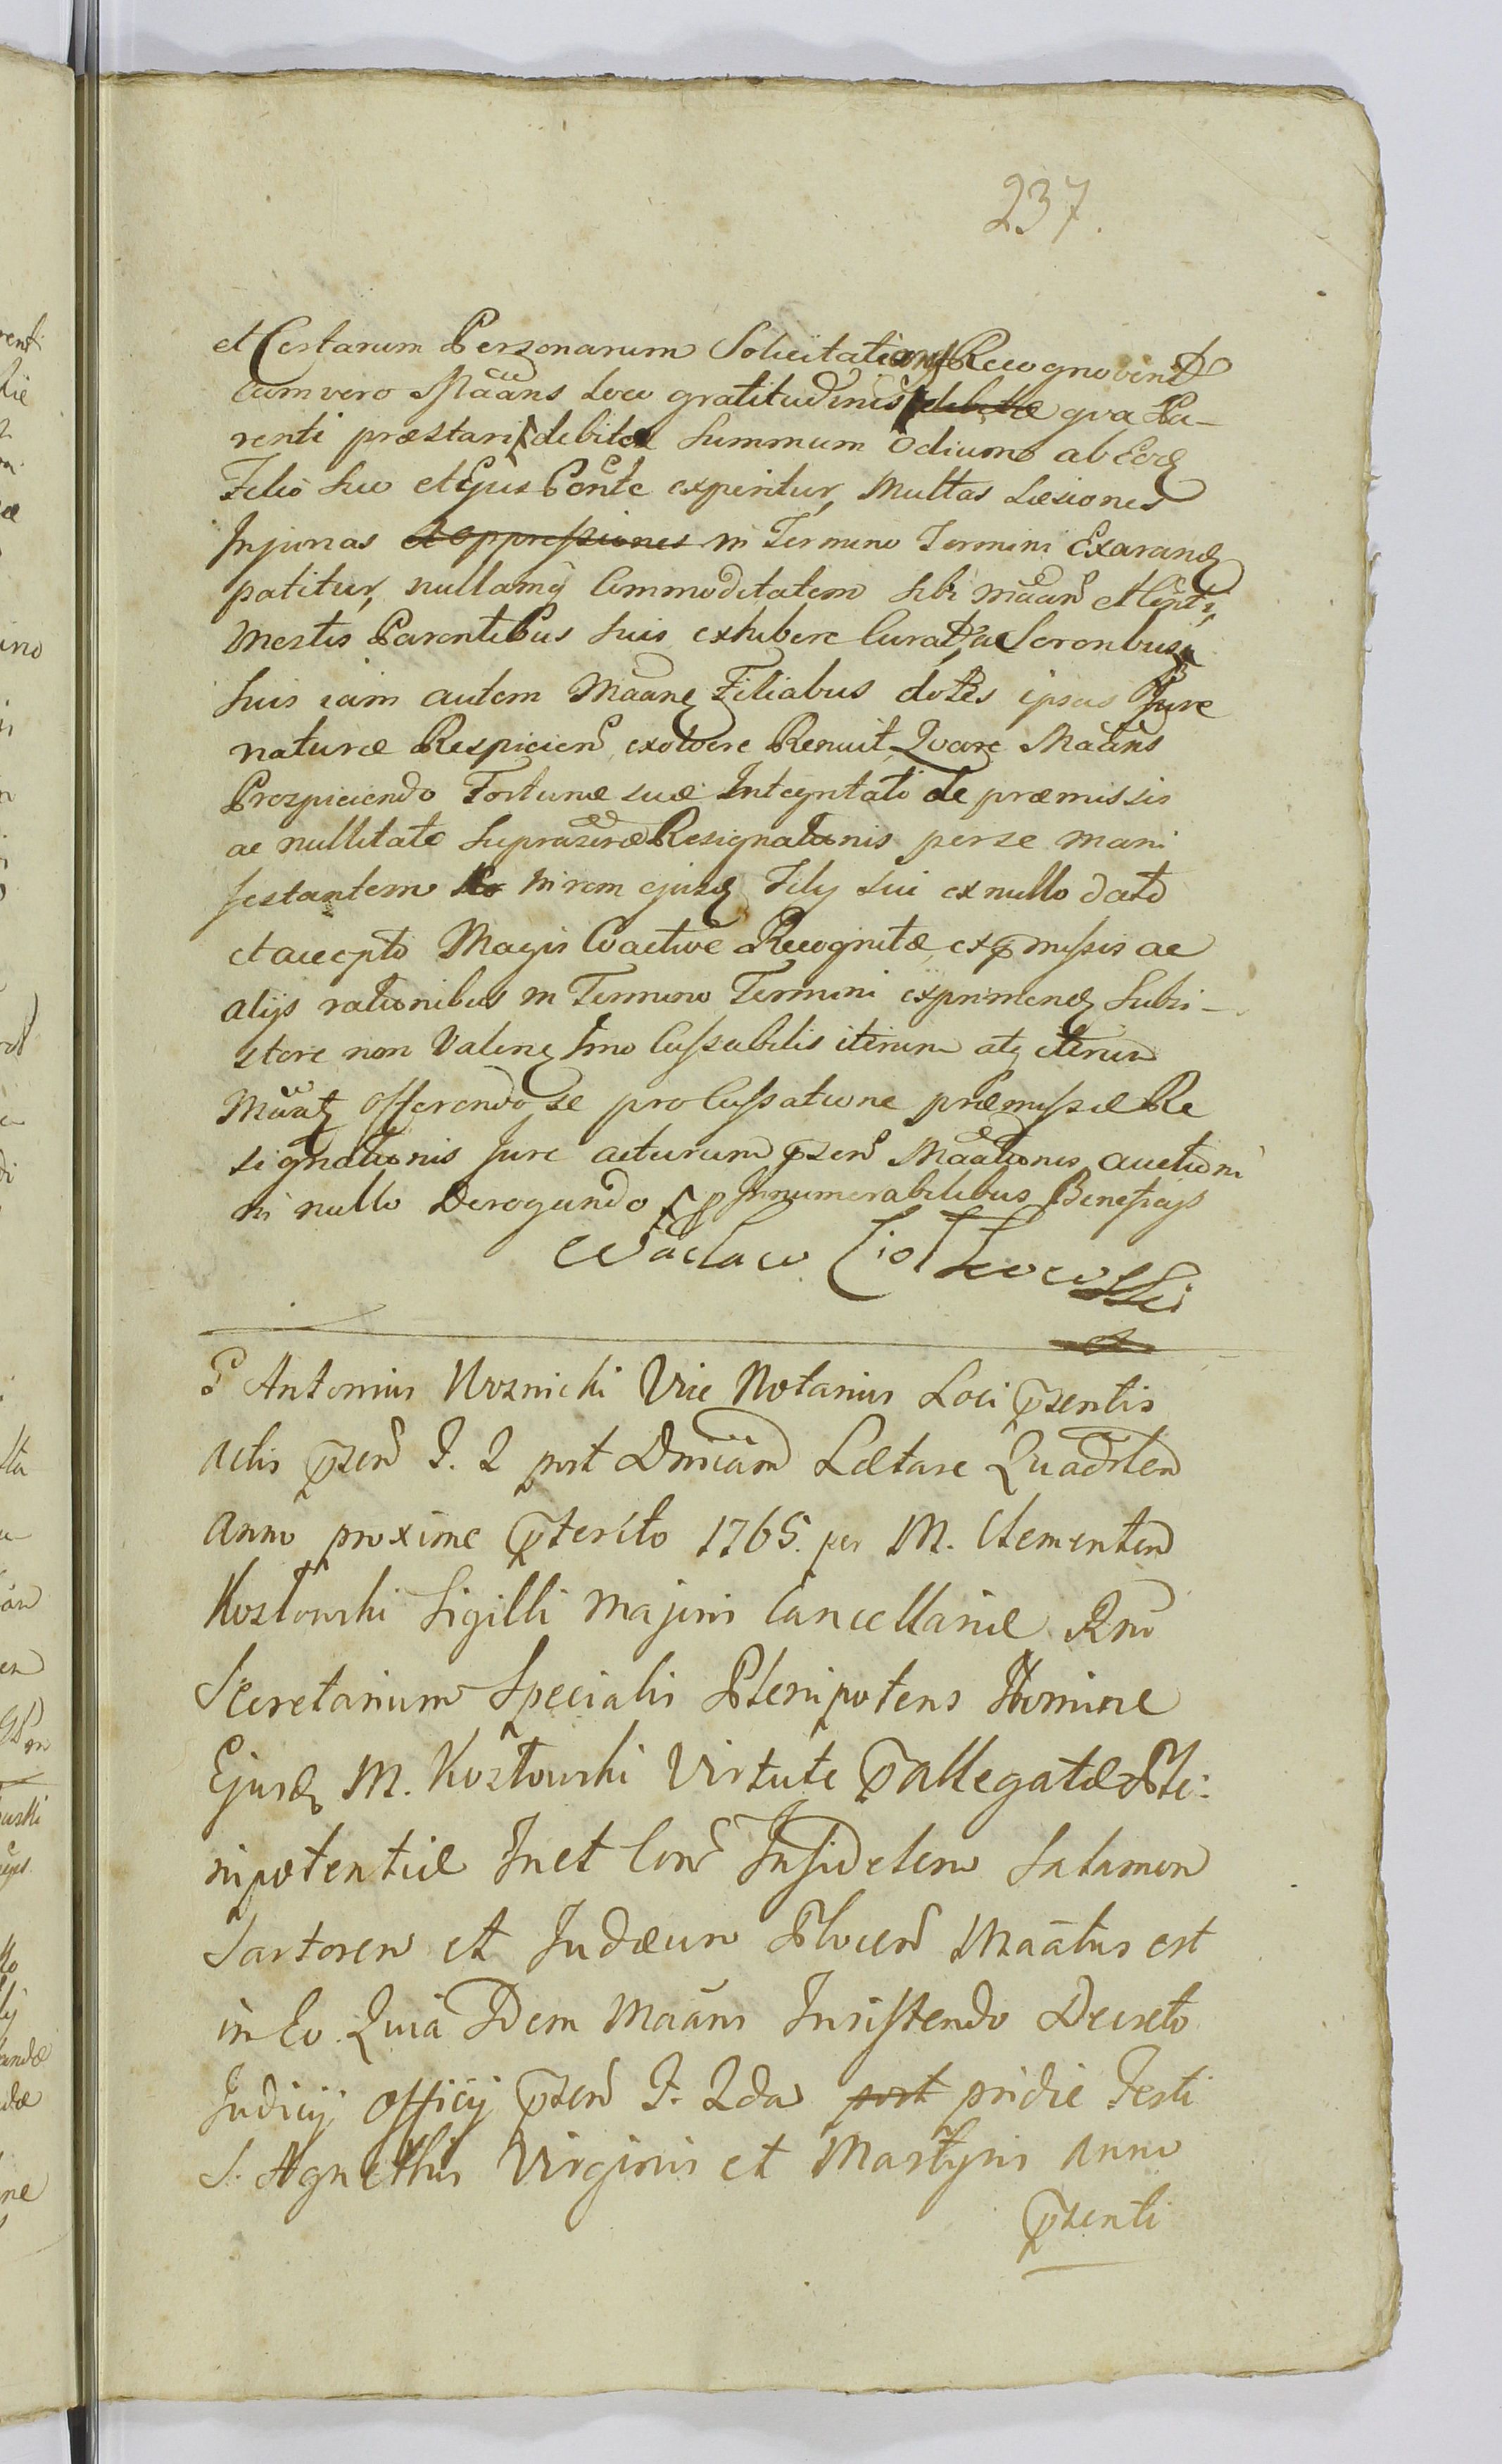 237.
et Certarum Personarum Solicitationes Recognovent
cum vero Maans loco gratitudinis debitæ qva Pa-
renti præstari debitæ Summum Odium ab Eodꝫ
Filio Suo et Ejus Conte experitur, Multas Læsiones
Injurias et oppressiones in Termino Termini Exarandꝫ
patitur, nullamqꝫ Commoditatem sibi
Mestis Parentibus suis exhibere Curat, ac Sororibusqꝫ
Suis jam autem Maanꝫ Filiabus dotes ipsas Jure
naturæ Respicien exolvere Renuit, Qvare Maans
Prospiciendo Fortunæ suæ Integritati de præmissis
ac nullitate Resignationis per se mani
festantem in rem ejusdꝫ Filij sui ex nullo dato
et accepto Magis Coactive Recognitæ, ex pmissis ac
alijs rationibus in Termino Termini exprimendꝫ Subsi-
stere non Valenꝫ Imo Cassabilis iterum atqꝫ iterum
Maatꝫ Offerendo se pro Cassatione præmissæ Re
signationis Jure acturum pzen Maationis auctioni
in nullo Derogando Innumerabilibus Beneficijs
Wacław
P Antonius Woznicki Vice Notarius Loci pzentis
actis pzen F. 2 post Dnicam Lætare Quadrlem
Anno proxime pterito 1765. per M. Clementem
Kozłowski Sigilli Majoris Cancellariæ Rni
Secretarium Specialis Plenipotens Nomine
Ejusdꝫ M. Kozłowski Virtute pallegatæ Ple:
nipotentiæ In et Con Infidelem Salamon
Sartorem et Judæum Plocen Maatus est
in Eo Quia Idem Maans Insistendo Decreto
Judicij Officij pzen F. 2da post pridie Festi
S. Agnethis Virginis et Martyris Anno
pzenti